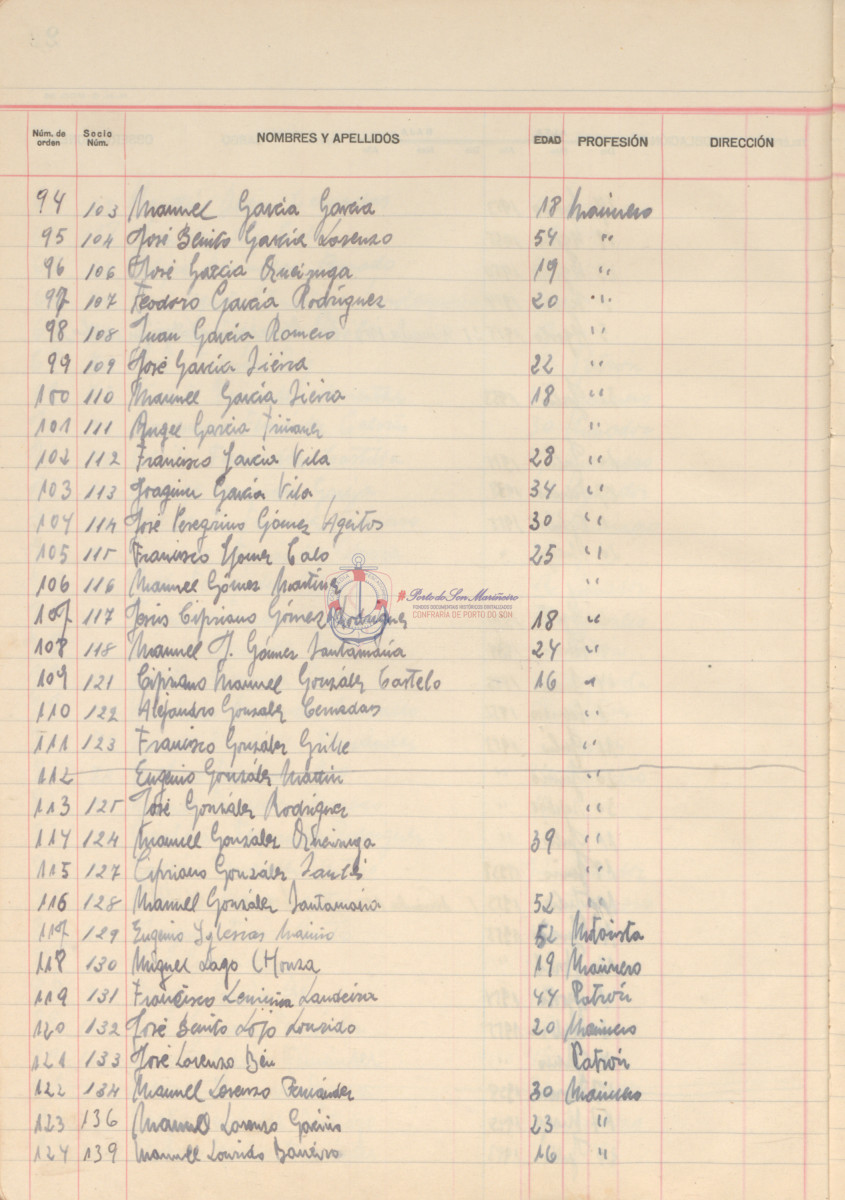 Núm. de orden Socio Núm. NOMBRES Y APELLIDOS EDAD PROFESIÓN DIRECCIÓN
94 103 Manuel García García 18 Marinero
95 104 José Benito García Lorenzo 54 "
96 106 José García Queiruga 19 "
97 107 Teodoro García Rodríguez 20 "
98 108 Juan García Romero "
99 109 José García Sieira 22 "
100 110 Manuel García Sieira 18 "
101 111 Angel García "
102 112 Francisco García Vila 28 "
103 113 Joaquin García Vila 34 "
104 114 José Peregrino Gómez Ageitos 30 "
105 115 Francisco Gomez Calo 25 "
106 116 Manuel Gómez Martinez "
107 117 Jesús Cipriano Gómez Rodriguez 18 "
108 118 Manuel J. Gomez Santamaría 24 "
109 121 Cipriano Manuel González Castelo 16 "
110 122 Alejandro Gonzalez Cernadas "
111 123 Francisco González "
112 Eugenio González Martin "
113 125 José González Rodríguez "
114 124 Manuel González Queiruga 39 "
115 127 Cipriano González "
116 128 Manuel González Santamaria 52 "
117 129 Eugenio Yglesias Mariño 52 Motorista
118 130 Miguel Lago Chouza 19 Marinero
119 131 Francisco Landeira 44 Patrón
120 132 José Benito Lojo Lourido 20 Marinero
121 133 José Lorenzo Patrón
122 134 Manuel Lorenzo Fernández 30 Marinero
123 136 Manuel Lorenzo 23 "
124 139 Manuel Lourido Barreiro 16 "
#Porto do Son Mariñeiro
FONDOS DOCUMENTAIS HISTÓRICOS DIXITALIZADOS
CONFRARIA DE PORTO DO SON